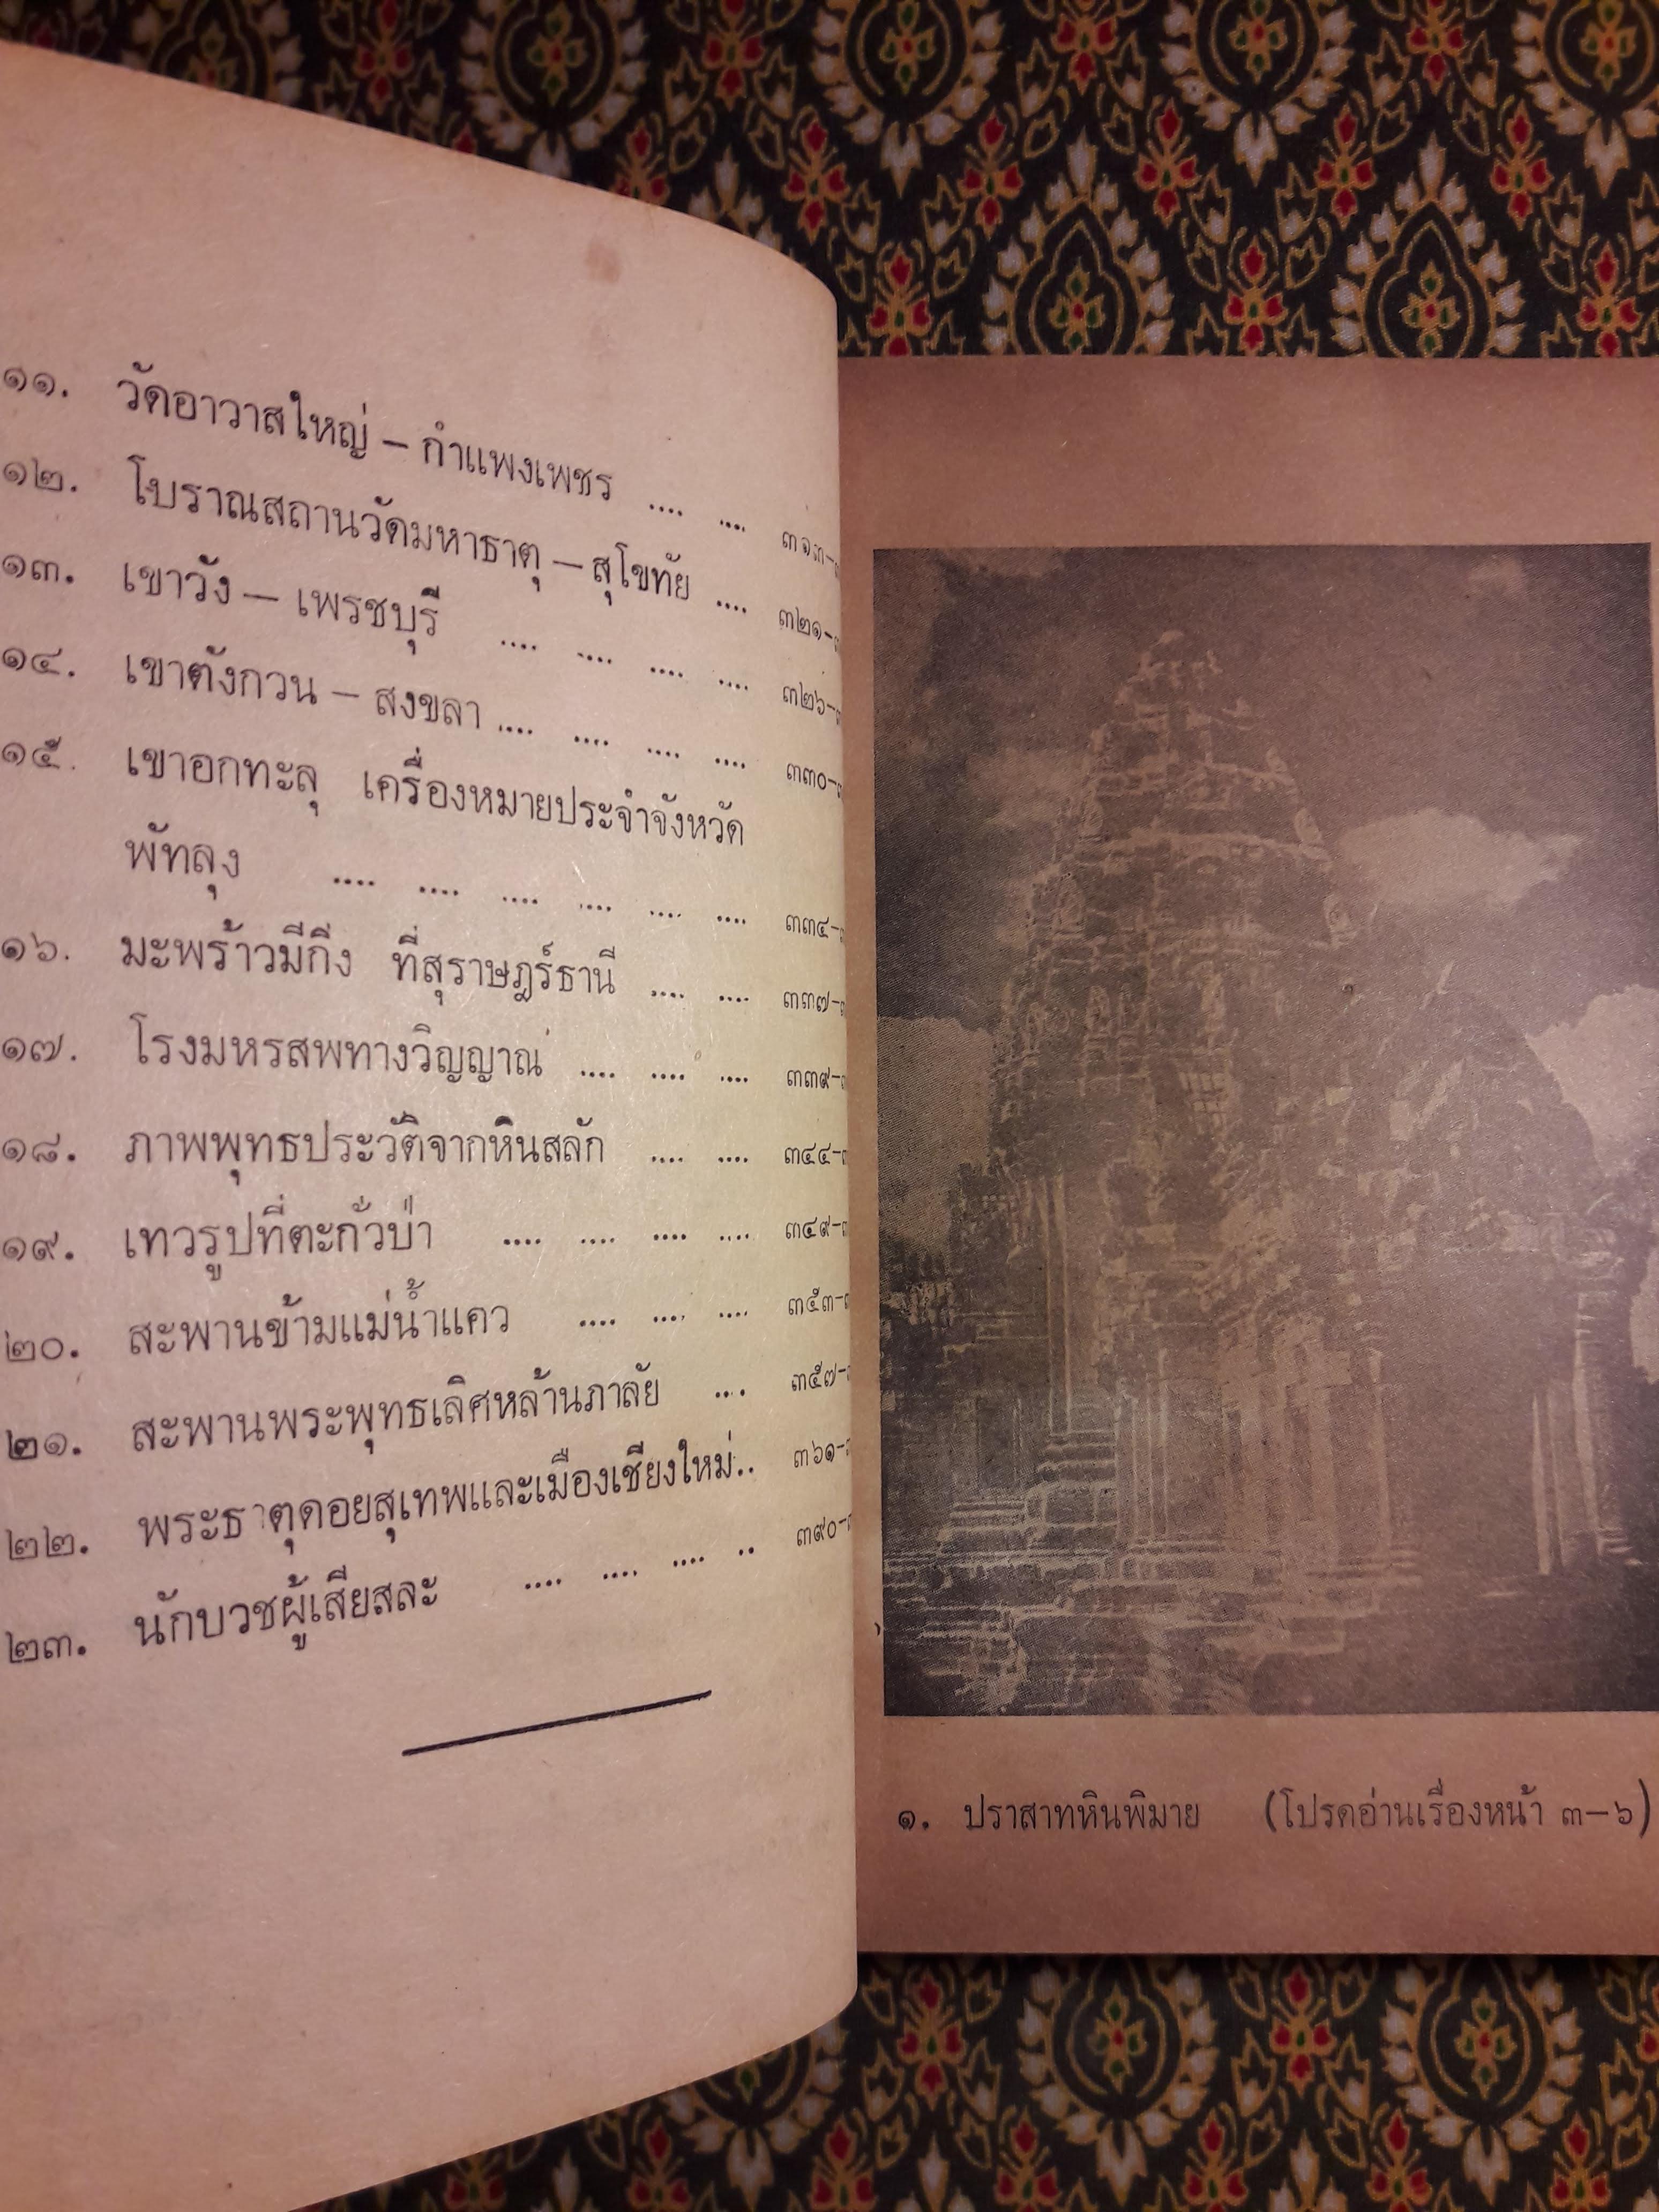 ๑๑. วัดอาวาสใหญ่ – กำแพงเพชร .... .... ๓๑๓–
๑๒. โบราณสถานวัดมหาธาตุ – สุโขทัย .... ๓๒๑–
๑๓. เขาวัง – เพรชบุรี .... .... .... .... ๓๒๖–
๑๔. เขาตังกวน – สงขลา .... .... .... .... ๓๓๐–
๑๕. เขาอกทะลุ เครื่องหมายประจำจังหวัด
พัทลุง .... .... .... .... .... .... ๓๓๔–
๑๖. มะพร้าวมีกิ่ง ที่สุราษฎร์ธานี .... .... ๓๓๗–
๑๗. โรงมหรสพทางวิญญาณ .... .... .... ๓๓๙–
๑๘. ภาพพุทธประวัติจากหินสลัก .... .... ๓๔๔–
๑๙. เทวรูปที่ตะกั่วป่า .... .... .... .... ๓๔๙–
๒๐. สะพานข้ามแม่น้ำแคว .... .... .... ๓๕๓–
๒๑. สะพานพระพุทธเลิศหล้านภาลัย ... ๓๕๗–
๒๒. พระธาตุดอยสุเทพและเมืองเชียงใหม่.. ๓๖๑–
๒๓. นักบวชผู้เสียสละ .... .... .... .. ๓๙๐–
๑. ปราสาทหินพิมาย (โปรดอ่านเรื่องหน้า ๓–๖)